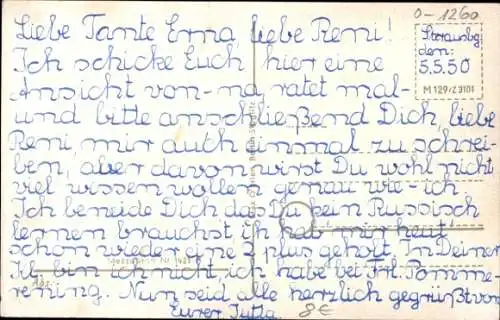 0-1260
Liebe Tante Erna liebe Reni!
Strausbg
den:
5.5.50
M 129/Z 3101
Ich schicke Euch hier eine
Ansicht von - na ratet mal -
und bitte anschließend Dich liebe
Reni mir auch einmal zu schrei-
ben, aber davon wirst Du wohl nicht
viel wissen wollen genau wie ich
Ich beneide Dich das Du kein Russisch
lernen brauchst ich hab mir heut
schon wieder eine 3 plus geholt. In Deiner
Kl. bin ich nicht, ich habe bei Frl. Pomme-
rening. Nun seid alle herzlich gegrüßt von
Abs.
Eurer Jutta.
8€